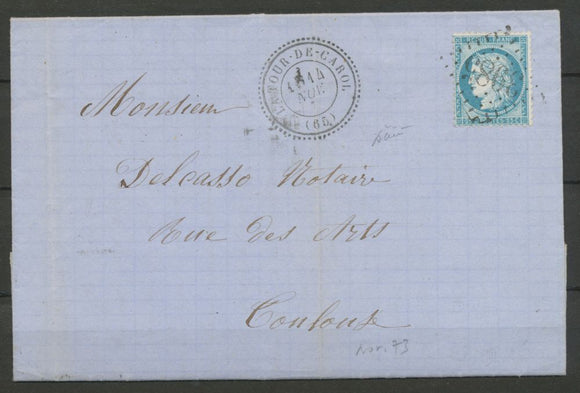 LATOUR-DE-CAROL
14
(65)
Monsieur
Delcasso Notaire
Rue des Arts
Toulouse
nov. 73